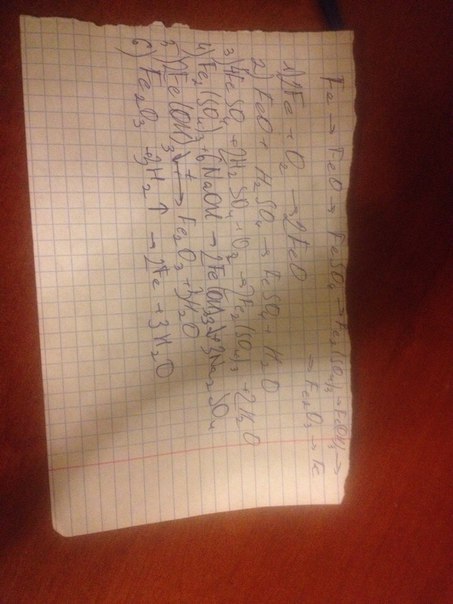 Fe → FeO → FeSO₄ → Fe₂(SO₄)₃ → Fe(OH)₃ →
→ Fe₂O₃ → Fe
1) 2Fe + O₂ → 2FeO
2) FeO + H₂SO₄ → FeSO₄ + H₂O
3) 4FeSO₄ + 2H₂SO₄ + O₂ → 2Fe₂(SO₄)₃ + 2H₂O
4) Fe₂(SO₄)₃ + 6NaOH → 2Fe(OH)₃↓ + 3Na₂SO₄
5) 2Fe(OH)₃↓ →ᵗ Fe₂O₃ + 3H₂O
6) Fe₂O₃ + 3H₂↑ → 2Fe + 3H₂O